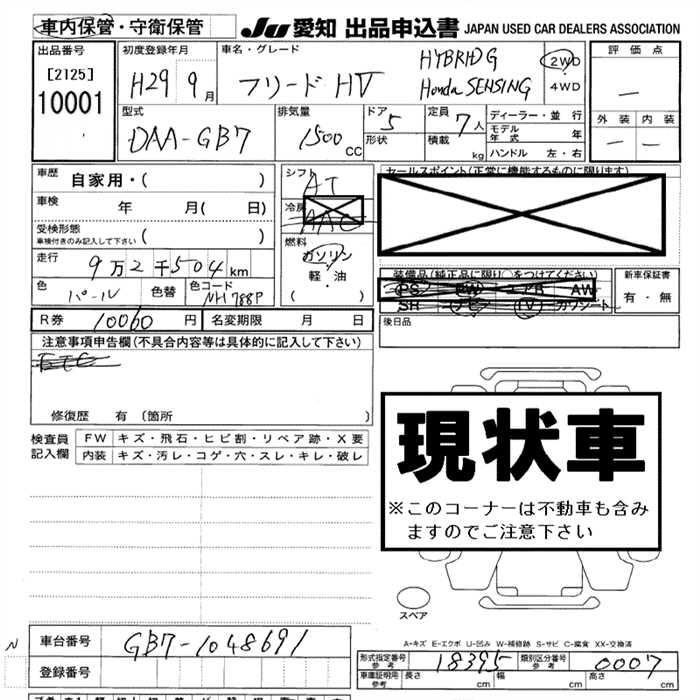 車内保管・守衛保管
JU 愛知 出品申込書 JAPAN USED CAR DEALERS ASSOCIATION
出品番号 初度登録年月 車名・グレード 評価点
[2125]
10001
H29 9月
フリード HV
HYBRID G
Honda SENSING
2WD
4WD
—
型式 排気量 ドア 定員 ディーラー・並行 外装 内装
DAA-GB7 1500cc 5 7人
形状 積載 kg
モデル年式 年
ハンドル 左・右
— —
車歴 自家用・( )
車検 年 月( 日)
受検形態
車検付きのみ記入して下さい ( )
走行 9万2千504km
色 パール 色替 色コード NH788P
シフト AT
冷房 AAC
燃料
ガソリン
軽・油
( )
セールスポイント(正常に機能するものに限ります)
装備品(純正品に限り○をつけてください) 新車保証書
PS PW エアB AW
SH ナビ TV カワシート
有・無
R券 10060円 名変期限 月 日
後日品
注意事項申告欄(不具合内容等は具体的に記入して下さい)
ETC
修復歴 有 (箇所 )
検査員記入欄
FW キズ・飛石・ヒビ割・リペア跡・X要
内装 キズ・汚レ・コゲ・穴・スレ・キレ・破レ
現状車
※このコーナーは不動車も含み
ますのでご注意下さい
スペア
A-キズ E-エクボ U-凹み W-補修跡 S-サビ C-腐食 XX-交換済
N
車台番号 GB7-1048691
登録番号
形式指定番号 参考 18395 類別区分番号 参考 0007
車庫証明用 参考 長さ cm 幅 cm 高さ cm